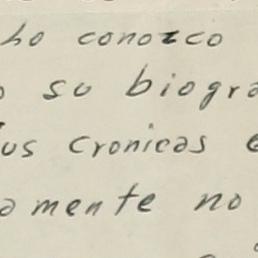 ho conozco
su biogra
us cronicas
amente no